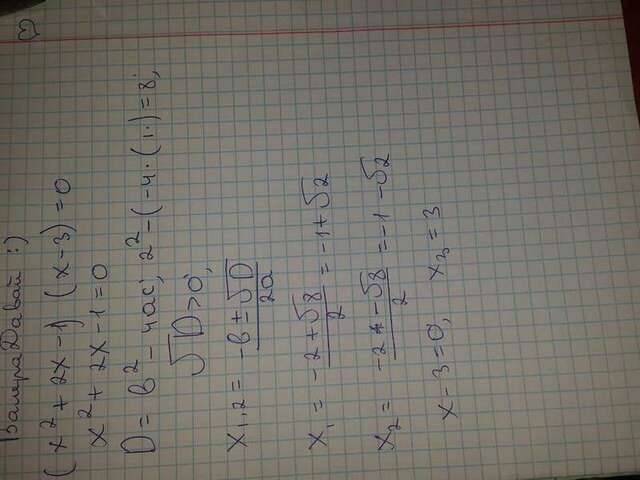 Давай :)
(x² + 2x - 1) (x - 3) = 0
x² + 2x - 1 = 0
D = в² - 4ас; 2² - (-4 · (1·) = 8;
√D > 0;
x₁,₂ = (-в ± √D) / 2а
x₁ = (-2 + √8) / 2 = -1 + √2
x₂ = (-2 - √8) / 2 = -1 - √2
x - 3 = 0, x₃ = 3